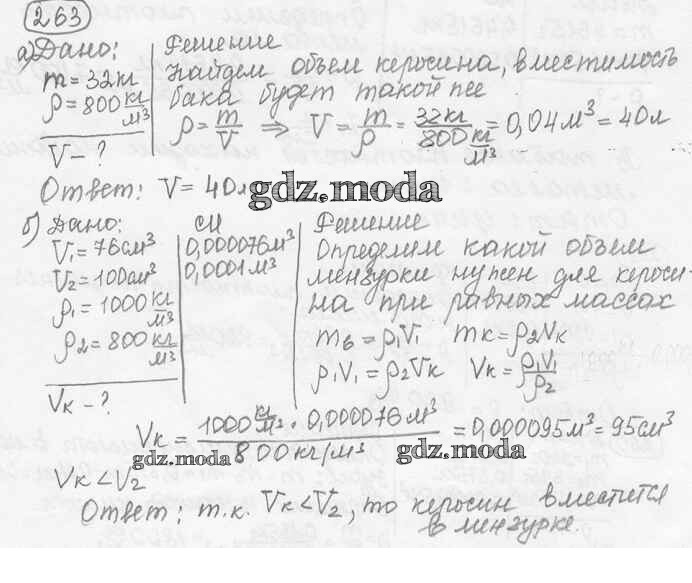 263
а) Дано:
m = 32 кг
ρ = 800 кг/м³
V - ?
Решение
Найдем объем керосина, вместимость
бака будет такой же
ρ = m/V ⇒ V = m/ρ = 32кг/800 кг/м³ = 0,04 м³ = 40л
Ответ: V = 40л
gdz.moda
б) Дано:
V₁ = 76 см³
V₂ = 100 см³
ρ₁ = 1000 кг/м³
ρ₂ = 800 кг/м³
Vк - ?
СИ
0,000076 м³
0,0001 м³
Решение
Определим какой объем
мензурки нужен для кероси-
на при равных массах
mв = ρ₁V₁ mк = ρ₂Vк
ρ₁V₁ = ρ₂Vк Vк = ρ₁V₁/ρ₂
Vк = 1000 кг/м³ · 0,000076 м³ / 800 кг/м³ = 0,000095 м³ = 95 см³
gdz.moda gdz.moda
Vк < V₂
Ответ: т.к. Vк < V₂, то керосин вместится
в мензурке.